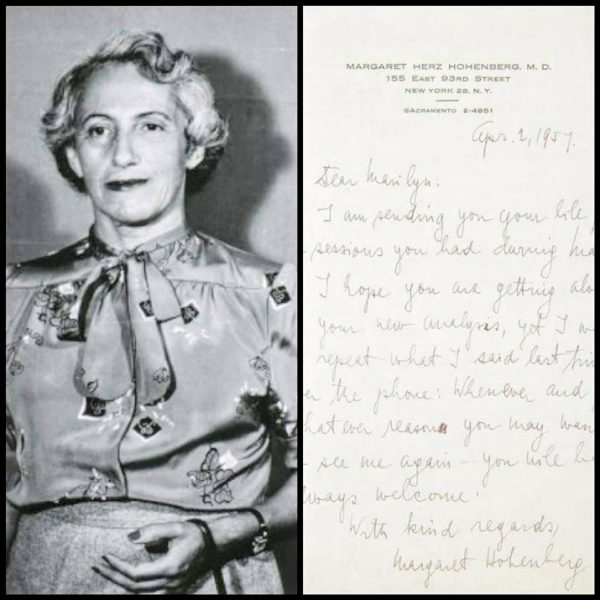 MARGARET HERZ HOHENBERG, M. D.
155 EAST 93RD STREET
NEW YORK 28, N. Y.
SACRAMENTO 2-4951
Apr. 2, 1957.
Dear Marilyn:
I am sending you your
sessions you had during Ma
I hope you are getting alo
your new analysis, yet I w
repeat what I said last tim
er the phone: Whenever and
hatever reason you may wan
see me again – you will b
ways welcome!
With kind regards,
Margaret Hohenberg